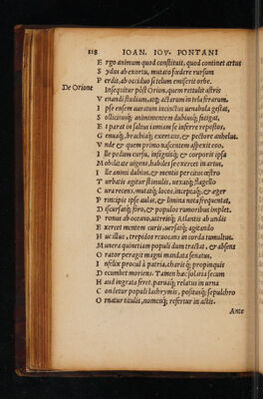 118 IOAN. IOV. PONTANI
E rgo animum quod constituit, quod continet artus
S ydus ab exortu, mutato fœdere rursum
P erdit, ab occiduo si telum emiserit orbe.
De Orione I nsequitur pòst Orion, quem rettulit astris
V enandi studium, atq; actarum in tela ferarum.
I pse ensem auratum incinctus uenabula gestat,
S ollicitusq; animi mentem dubiusq; fatigat,
E t parat in saltus iamiam se inferre repostos,
G enuaq; brachiaq; exertus, & pectore anhelus.
V nde & quem primo nascentem aspexit eoo,
I lle pedum cursu, insigniq; & corporis ipsa
M obilitate uigens, habiles se exercet in armos,
I lle animi dubius, & mentis percitus œstro
T urbatis agitur stimulis, uexatq; flagello
C ura recens, mutatq; locos, inceptaq; & ager
P rincipis ipse aulas, & limina nota frequentat,
D iscursatq; foro, & populos rumoribus implet.
P ronus ab oceano, uterinisq; Atlantis ab undis
E xercet mentem curis, uersatq; agitando
H uc illuc, trepidos reuocans in corda tumultus.
M unera quinetiam populi dum tractat, & absens
O rator peragit magni mandata senatus,
I nfelix procul à patria, charisq; propinquis
D ecumbet moriens. Tamen hæc solatia secum
H aud ingrata feret. paruisq; relatus in urna
C ondetur populi lachrymis, positusq; sepulchro
O rnatur titulis, nomenq; refertur in actis.
Ante